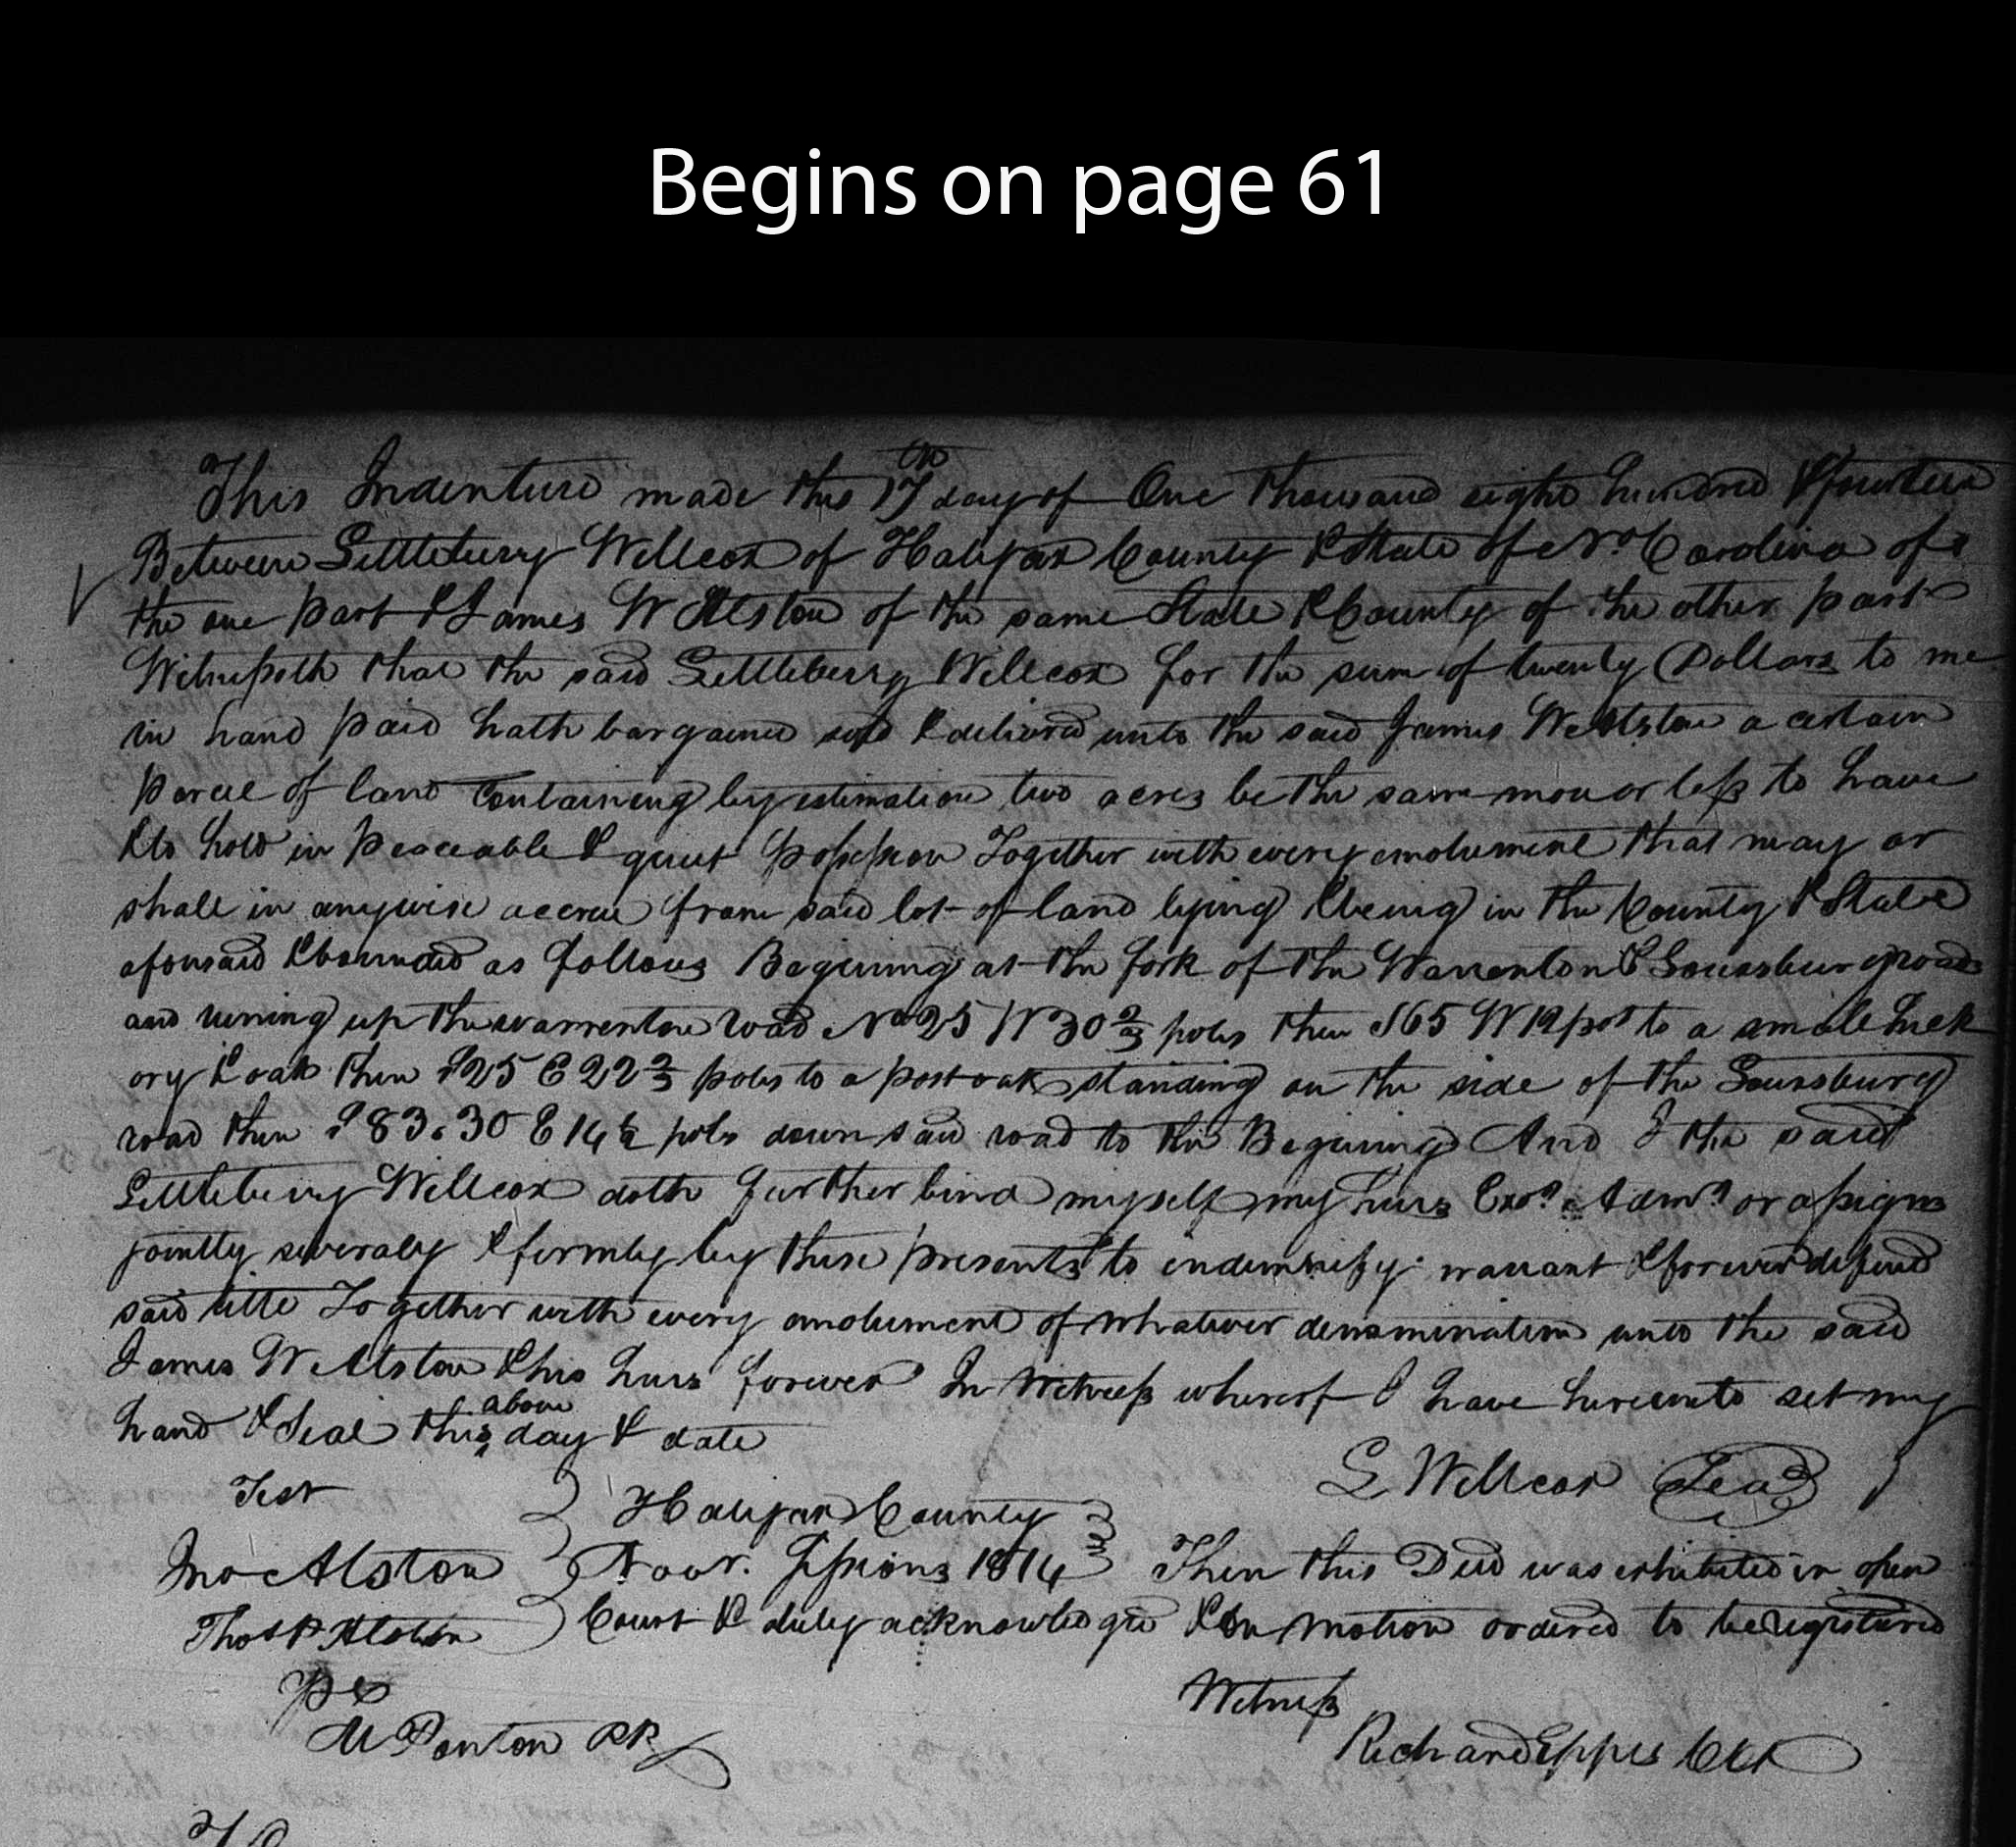 Begins on page 61
This Indenture made this 17th day of One thousand eight hundred & fourteen
Between Littleberry Willcox of Halifax County & State of No Carolina of
the one part & James W Alston of the same State & County of the other part
Witnesseth that the said Littleberry Willcox for the sum of twenty Dollars to me
in hand paid hath bargained sold & delivered unto the said James W Alston a certain
parcel of land Containing by estimation two acres be the same more or less to have
& to hold in peaceable & quiet possession Together with every emolument that may or
shall in anywise accrue from said lot of land lying & being in the County & State
aforesaid & bounded as follows Begining at the fork of the Warrenton & Louisburg road
and runing up the warrenton road No 25 W 30 2/3 poles then S 65 W 12 pos to a small hick
ory & oak then S 25 E 22 2/3 poles to a post oak standing on the side of the Louisburg
road then S 83.30 E 14 1/2 pols down said road to the Begining And I the said
Littleberry Willcox doth further bind myself my heirs Exors Admrs or assigns
jointly severaly & firmly by these presents to indemnify warrant & forever defend
said title Together with every emolument of whatever denomination unto the said
James W Alston & his heirs forever In Witness whereof I have hereunto set my
above
hand & Seal this day & date
L Willcox Seal
Test
Halifax County
Jno Alston
Novr. Sessions 1814 Then this Deed was exhibited in open
Thos P Alston
Court & duly acknowledged & on motion ordered to be registered
Witness
M Ponton PR
Richard Eppes Clk